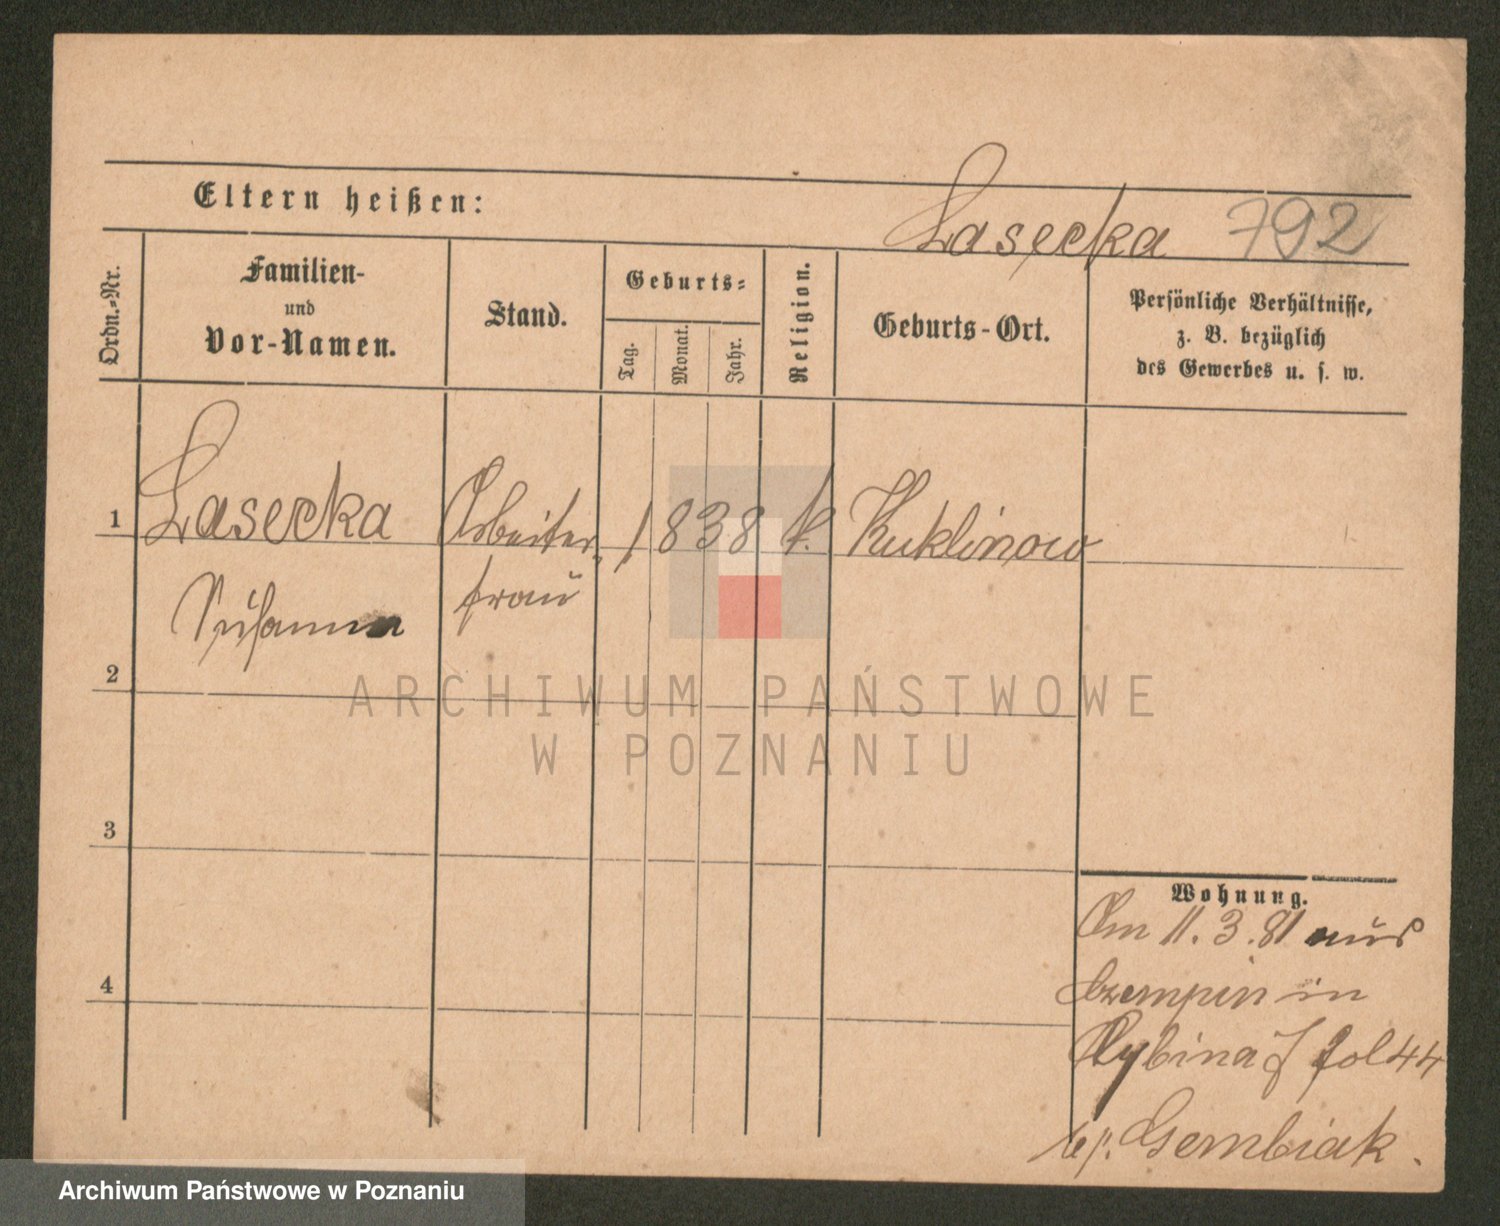 Eltern heißen:
Lasecka 792
Ordn.-Nr.
Familien-
und
Vor-Namen.
Stand.
Geburts-
Tag.
Monat.
Jahr.
Religion.
Geburts-Ort.
Persönliche Verhältnisse,
z. B. bezüglich
des Gewerbes u. s. w.
1 Lasecka Arbeiter 1838 k. Kuklinow
Susanna frau
2
ARCHIWUM PAŃSTWOWE
W POZNANIU
3
Wohnung.
Am 11.3.81 aus
Czempin in
4
Rybina J fol 44
bei Gembiak.
Archiwum Państwowe w Poznaniu